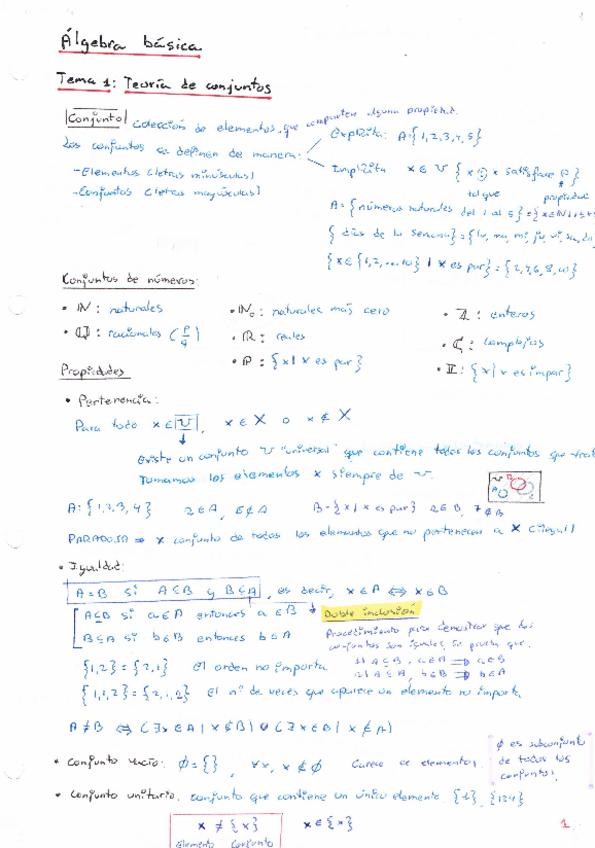 Álgebra básica
Tema 1: Teoría de conjuntos
Conjunto Colección de elementos, que comparten alguna propiedad.
Los conjuntos se definen de manera:
Explícita: A={1,2,3,4,5}
- Elementos (letras minúsculas)
Implícita x∈U { x : x satisface P }
- Conjuntos (letras mayúsculas)
tal que propiedad
A={números naturales del 1 al 5}
{días de la semana}={lu, ma, mi, ju, vi, sa, do
{x∈{1,2,...10} | x es par}={2,4,6,8,10}
Conjuntos de números:
• ℕ: naturales
• ℕ₀: naturales más cero
• ℤ: enteros
• ℚ: racionales (p/q)
• ℝ: reales
• ℂ: complejos
• ℙ: {x | x es par}
• 𝕀: {x | x es impar}
Propiedades
• Pertenencia:
Para todo x∈U, x∈X o x∉X
Existe un conjunto U "universal" que contiene todos los conjuntos que
Tomamos los elementos x siempre de U.
A={1,2,3,4} 2∈A, 5∉A B={x | x es par} 2∈B, 7∉B
PARADOJA ⇒ X conjunto de todos los elementos que no pertenecen a X
• Igualdad:
A=B si A⊆B y B⊆A, es decir, x∈A ⇔ x∈B
A⊆B si a∈A entonces a∈B
Doble inclusión
B⊆A si b∈B entonces b∈A
Procedimiento para demostrar que dos
conjuntos son iguales. Se prueba que:
{1,2}={2,1} el orden no importa
1) A⊆B, a∈A ⇒ a∈B
2) A⊆B, b∈B ⇒ b∈A
{1,1,2}={2,1,2} el nº de veces que aparece un elemento no importa
A≠B ⇔ (∃x∈A | x∉B) o (∃x∈B | x∉A)
• Conjunto vacío: ∅={}, ∀x, x∉∅ Carece de elementos.
∅ es subconjunto
de todos los
conjuntos.
• Conjunto unitario. conjunto que contiene un único elemento {1}, {124}
x≠{x} x∈{x}
Elemento Conjunto
1